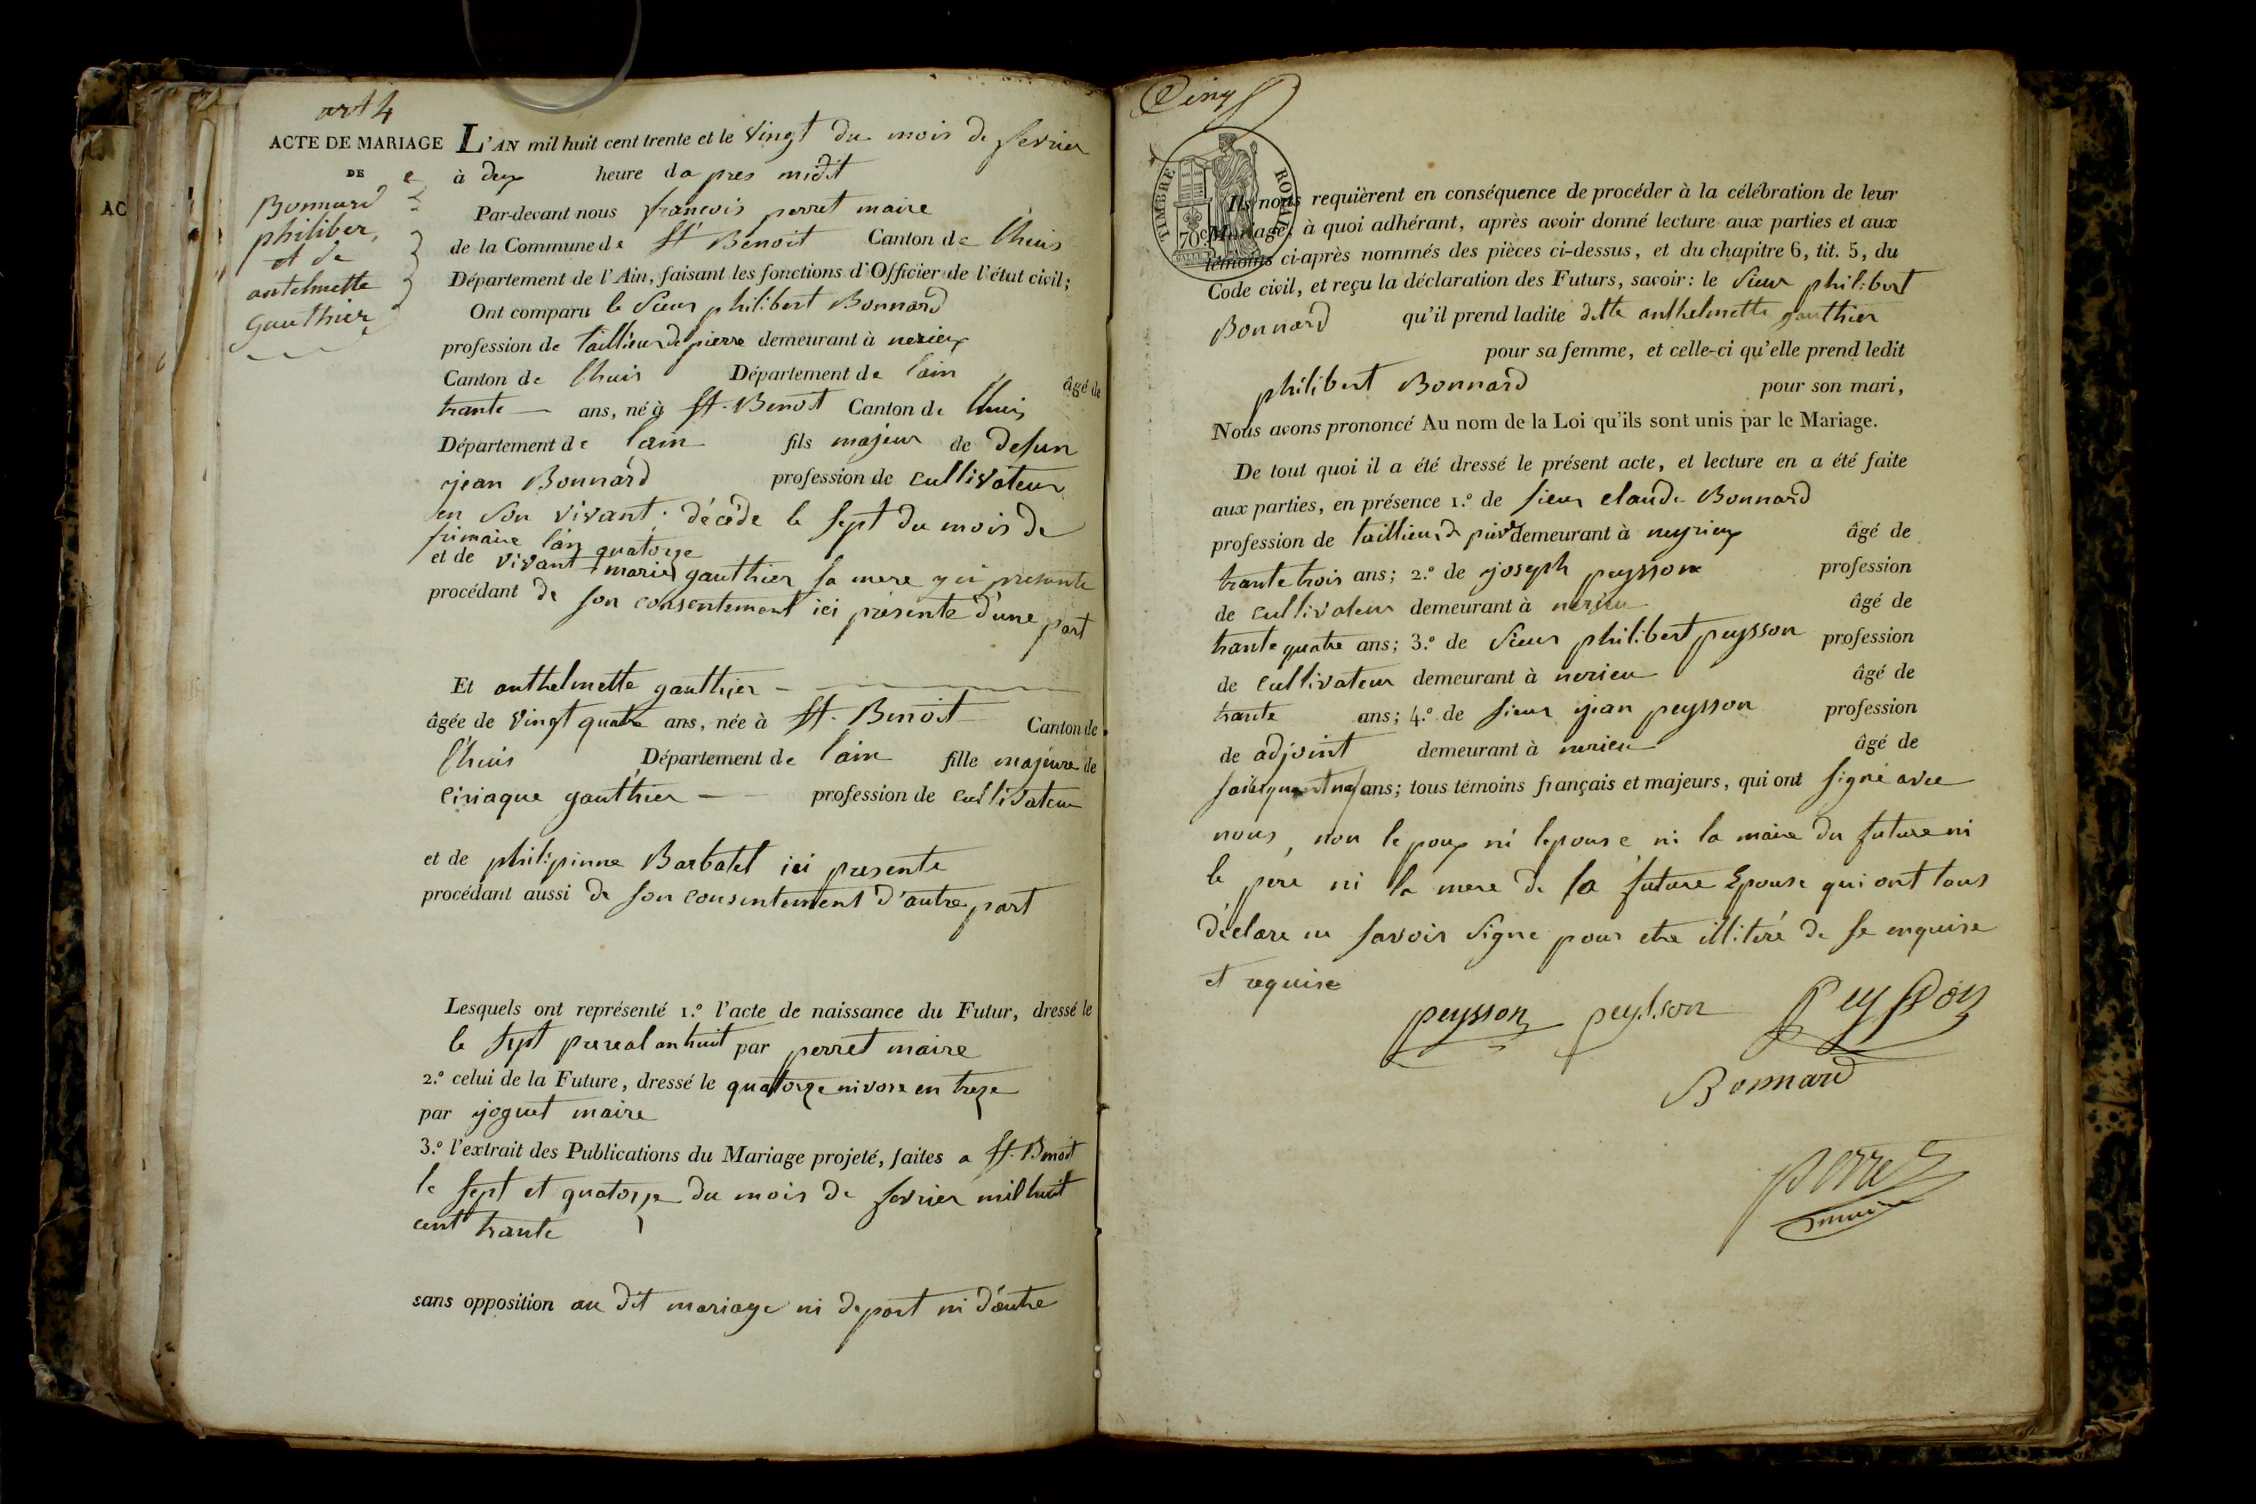 art 4
ACTE DE MARIAGE
DE
Bonnard
philiber,
et de
antelmette
gauthier
AC
L'AN mil huit cent trente et le vingt du mois de fevrier
à deux heure da pres midit
Par-devant nous francois perret maire
de la Commune de St Benoit Canton de lhuis
Département de l'Ain, faisant les fonctions d'Officier de l'état civil;
Ont comparu le sieur philibert Bonnard
profession de taillieur de pierre demeurant à nerieux
Canton de lhuis Département de lain âgé de
trante ans, né à St. Benoit Canton de lhuis
Département de lain fils majeur de defun
jean Bonnard profession de cultivateur
en son vivant décéde le sept du mois de
frimaire l'an quatorze
et de vivant marie gauthier sa mere y ci presente
procédant de son consentement ici présente d'une part
Et anthelmette gauthier
âgée de vingt quatre ans, née à St. Benoit Canton de
lhuis Département de lain fille majeure de
Ciriaque gauthier profession de cultivateur
et de philipinne Barbatel ici presente
procédant aussi de son consentement d'autre part
Lesquels ont représenté 1.º l'acte de naissance du Futur, dressé le
le sept prereal an huit par perret maire
2.º celui de la Future, dressé le quatorze nivose en treze
par joguet maire
3.º l'extrait des Publications du Mariage projeté, faites a St. Benoit
le sept et quatorze du mois de fevrier mil huit
cent trante
sans opposition au dit mariage ni de part ni d'autre
Cinq
TIMBRE ROYAL
70c
Ils nous requièrent en conséquence de procéder à la célébration de leur
Mariage, à quoi adhérant, après avoir donné lecture aux parties et aux
témoins ci-après nommés des pièces ci-dessus, et du chapitre 6, tit. 5, du
Code civil, et reçu la déclaration des Futurs, savoir: le sieur philibert
Bonnard qu'il prend ladite ditte anthelmette gauthier
pour sa femme, et celle-ci qu'elle prend ledit
philibert Bonnard pour son mari,
Nous avons prononcé Au nom de la Loi qu'ils sont unis par le Mariage.
De tout quoi il a été dressé le présent acte, et lecture en a été faite
aux parties, en présence 1.º de sieur claude Bonnard
profession de taillieur de pierre demeurant à neyrieux âgé de
trante trois ans; 2.º de joseph peysson profession
de cultivateur demeurant à nerieu âgé de
trante quatre ans; 3.º de sieur philibert peysson profession
de cultivateur demeurant à nerieu âgé de
trante ans; 4.º de sieur jean peysson profession
de adjoint demeurant à nerieu âgé de
ans; tous témoins français et majeurs, qui ont signé avec
nous, non lepoux ni lepouse ni la maire du future ni
le pere ni la mere de la future Epouse qui ont tous
déclare ne savoir signe pour etre illiteré de se enquise
et requise
peysson peysson Peysson
Bonnard
perret
maire